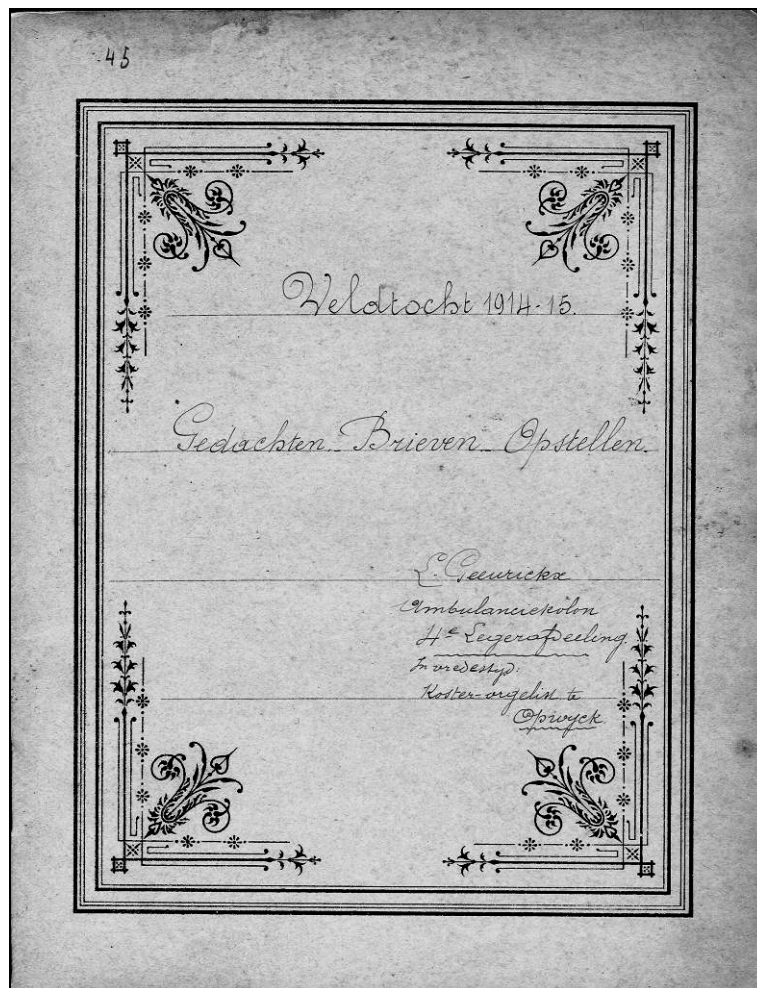 45
Veldtocht 1914-15.
Gedachten - Brieven - Opstellen.
L. Geeurickx
Ambulanciekolon
4e Legerafdeeling
In vredestyd:
Koster-orgelist te
Opwyck